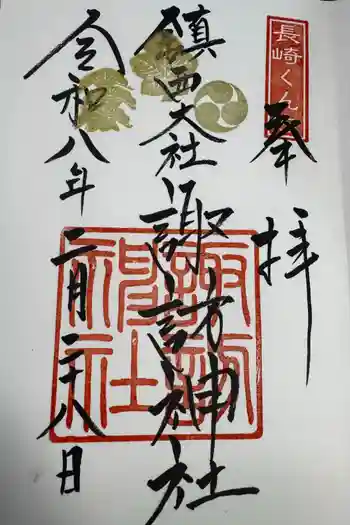 長崎くんち
奉拝
鎮西大社
諏訪神社
諏訪神社
令和八年二月二十八日